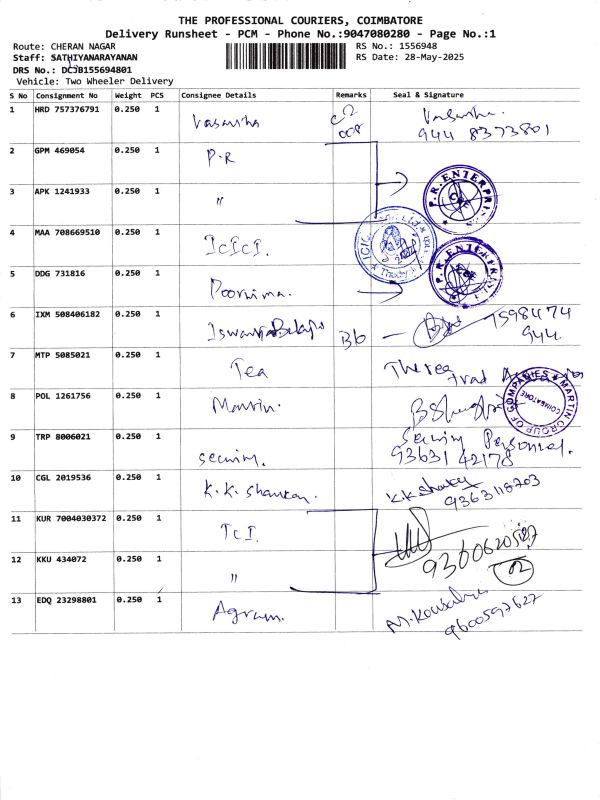 THE PROFESSIONAL COURIERS, COIMBATORE
Delivery Runsheet - PCM - Phone No.:9047080280 - Page No.:1
Route: CHERAN NAGAR
RS No.: 1556948
Staff: SATHIYANARAYANAN
RS Date: 28-May-2025
DRS No.: DCJB155694801
Vehicle: Two Wheeler Delivery
S No Consignment No Weight PCS Consignee Details Remarks Seal & Signature
1 HRD 757376791 0.250 1 Vasantha Vasantha
944 8373801
2 GPM 469054 0.250 1 P.R
P.R.ENTERPRISES
3 APK 1241933 0.250 1 "
4 MAA 708669510 0.250 1 ICICI.
P.R.ENTERPRISES
5 DDG 731816 0.250 1 Poornima.
6 IXM 508406182 0.250 1 Bb 7598474
944
7 MTP 5085021 0.250 1 Tea
8 POL 1261756 0.250 1 Martin.
MARTIN GROUP OF COMPANIES
COIMBATORE
9 TRP 8006021 0.250 1 security. Security Personnel.
93631 42178
10 CGL 2019536 0.250 1 K.K. Shankar. KK Shankar
9363118703
11 KUR 7004030372 0.250 1 TCI.
9360620527
12 KKU 434072 0.250 1 "
02
13 EDQ 23298801 0.250 1 Agram. M. Kousalya
9600597627